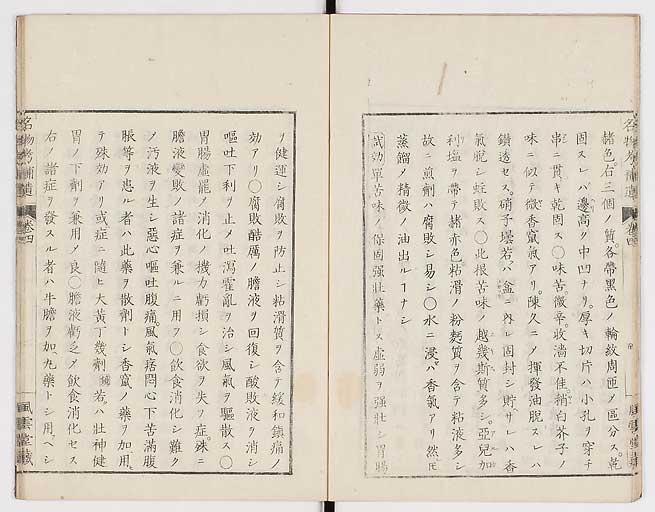 赭色右三個ノ質各帶黑色ノ輪紋周匝メ區分ス。乾
固スレバ邊高ク中凹ナリ。厚キ切片ハ小孔ヲ穿チ
串ニ貫キ乾固ス〇味苦微辛。收濇不佳。稍白芥子ノ
味ニ似テ微香竄氣アリ。陳久ニノ揮發油脫スレハ
鑽透セス。硝子壜若バ盒ニ內レ固封シ貯サレハ香
氣脫シ蛀敗ス〇此根苦味ノ越幾斯質多シ。亞兒加
利塩ヲ帶テ赭赤色粘滑ノ粉麪質ヲ含テ粘液多シ
故ニ煎劑ハ腐敗シ易シ〇水ニ浸バ香氣アリ然𪜈
蒸餾メ精微ノ油出ルヿナシ
試効單苦味ノ保固强壯藥トス虛弱ヲ强壯シ胃腸
ヲ健運シ腐敗ヲ防止シ粘滑質ヲ含テ緩和鎮痛ノ
効アリ〇腐敗酷厲ノ膽液ヲ回復シ酸敗液ヲ消シ
嘔吐下利ヲ止メ吐瀉霍亂ヲ治シ風氣ヲ驅散ス〇
胃腸虛罷ノ消化ノ機力虧損シ食欲ヲ失フ症殊ニ
膽液變敗ノ諸症ヲ兼ルニ用フ〇飲食消化シ難ク
ノ汚液ヲ生シ惡心嘔吐腹痛。風氣痞悶心下苦滿腹
脹等ヲ患ル者ハ此藥ヲ散劑トシ香竄ノ藥ヲ加用
テ殊効アリ或症ニ隨ヒ大黃丁幾劑若ハ壯神健
胃ノ下劑ヲ兼用メ良〇膽液虧乏メ飲食消化セス
右ノ諸症ヲ發スル者ハ牛膽ヲ加丸藥トシ用ヘシ
名物考補遺 卷四
風雲堂藏